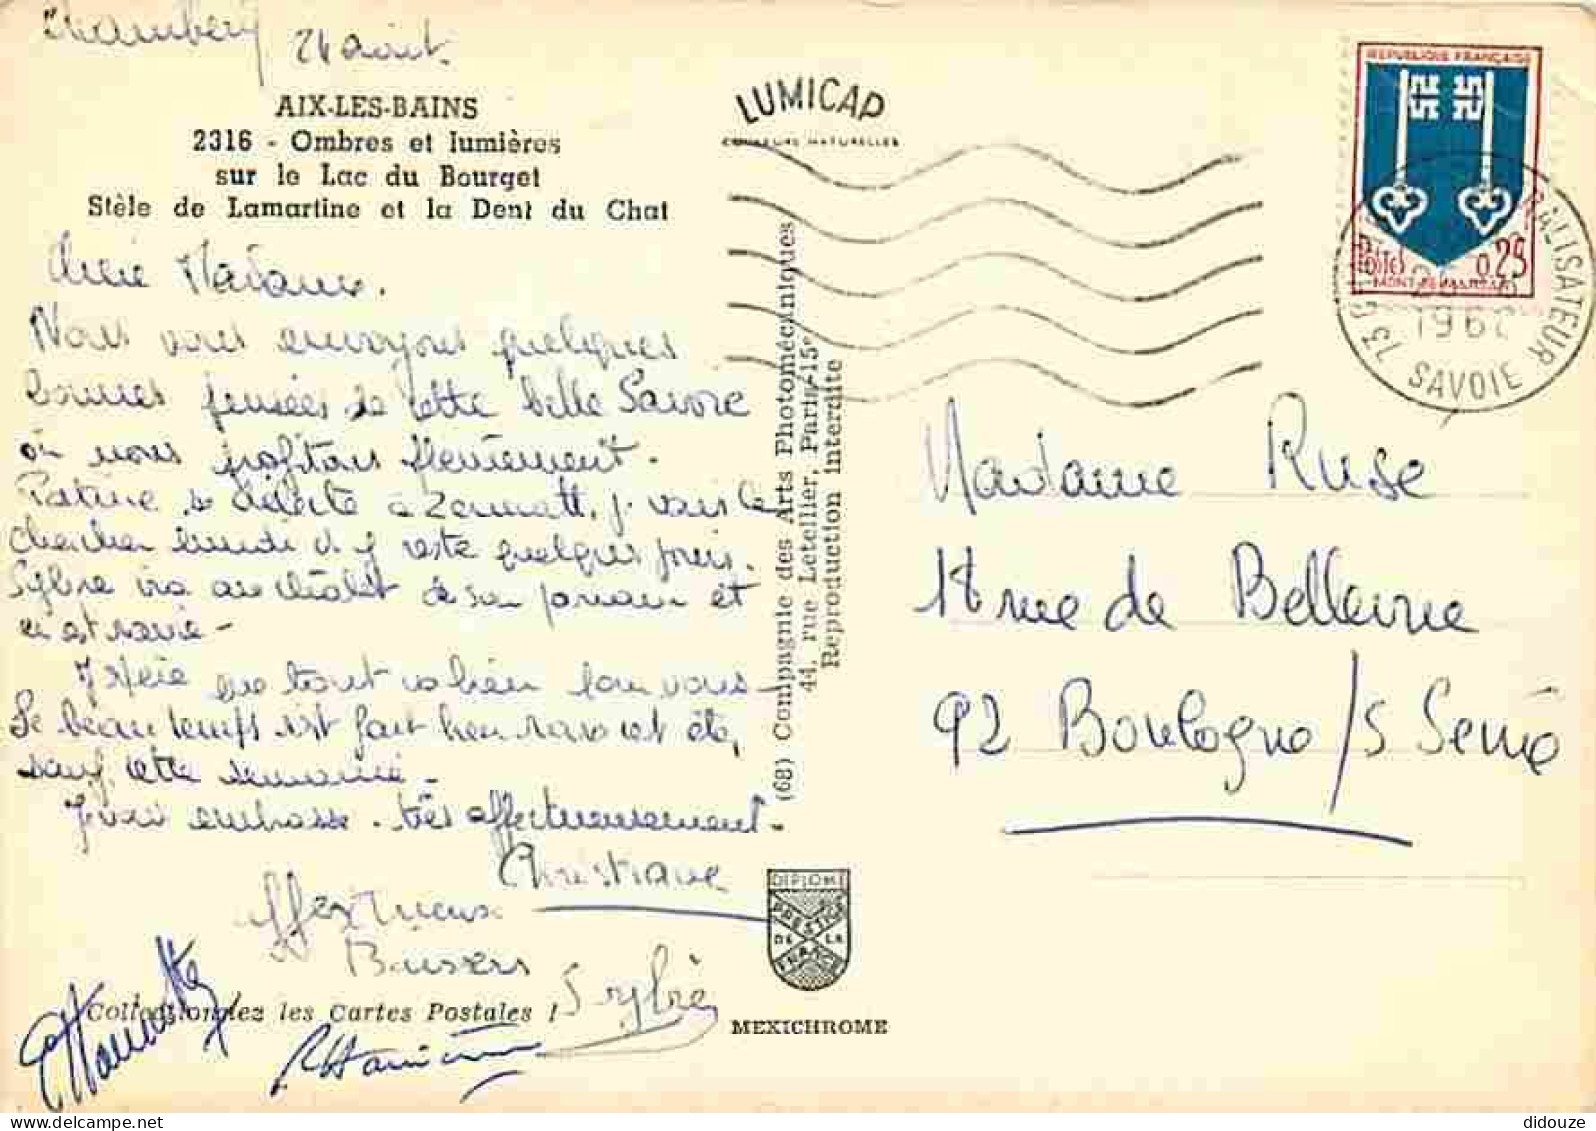 Chambéry 24 août.
AIX-LES-BAINS
2316 - Ombres et lumières
sur le Lac du Bourget
Stèle de Lamartine et la Dent du Chat
Chère Madame.
Nous vous envoyons quelques
bonnes pensées de cette belle Savoie
où nous profitons
Patrice se délecte à Zermatt, je vais le
chercher lundi il y reste quelques jours.
Sylvie ira au chalet de son parrain et
est ravie -
J'espère que tout va bien pour vous -
Le beau temps s'est fait bien rare cet été,
sauf cette semaine -
Je vous embrasse très affectueusement -
Christiane
affectueux
Baisers
Sylvie
Collectionnez les Cartes Postales !
LUMICAP
COULEURS NATURELLES
(68) Compagnie des Arts Photomécaniques
44, rue Letellier, Paris-15e
Reproduction interdite
DIPLOME
PRESTIGE
DE LA
FRANCE
MEXICHROME
REPUBLIQUE FRANÇAISE
POSTES 0,25
MONT-DE-MARSAN
73
SAVOIE
Madame Ruse
18 rue de Bellevue
92 Boulogne / s Seine
didouze / delcampe.net